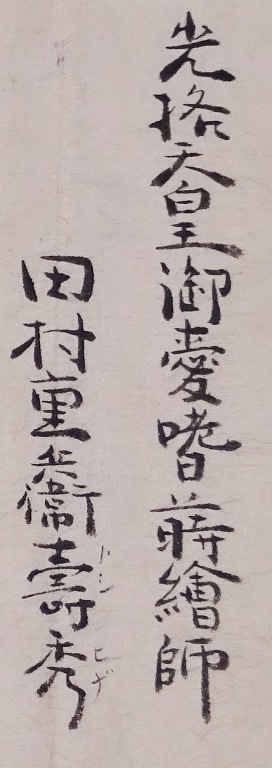 光格天皇御愛嗜蒔繪師
田村重兵衛壽秀
トシヒデ